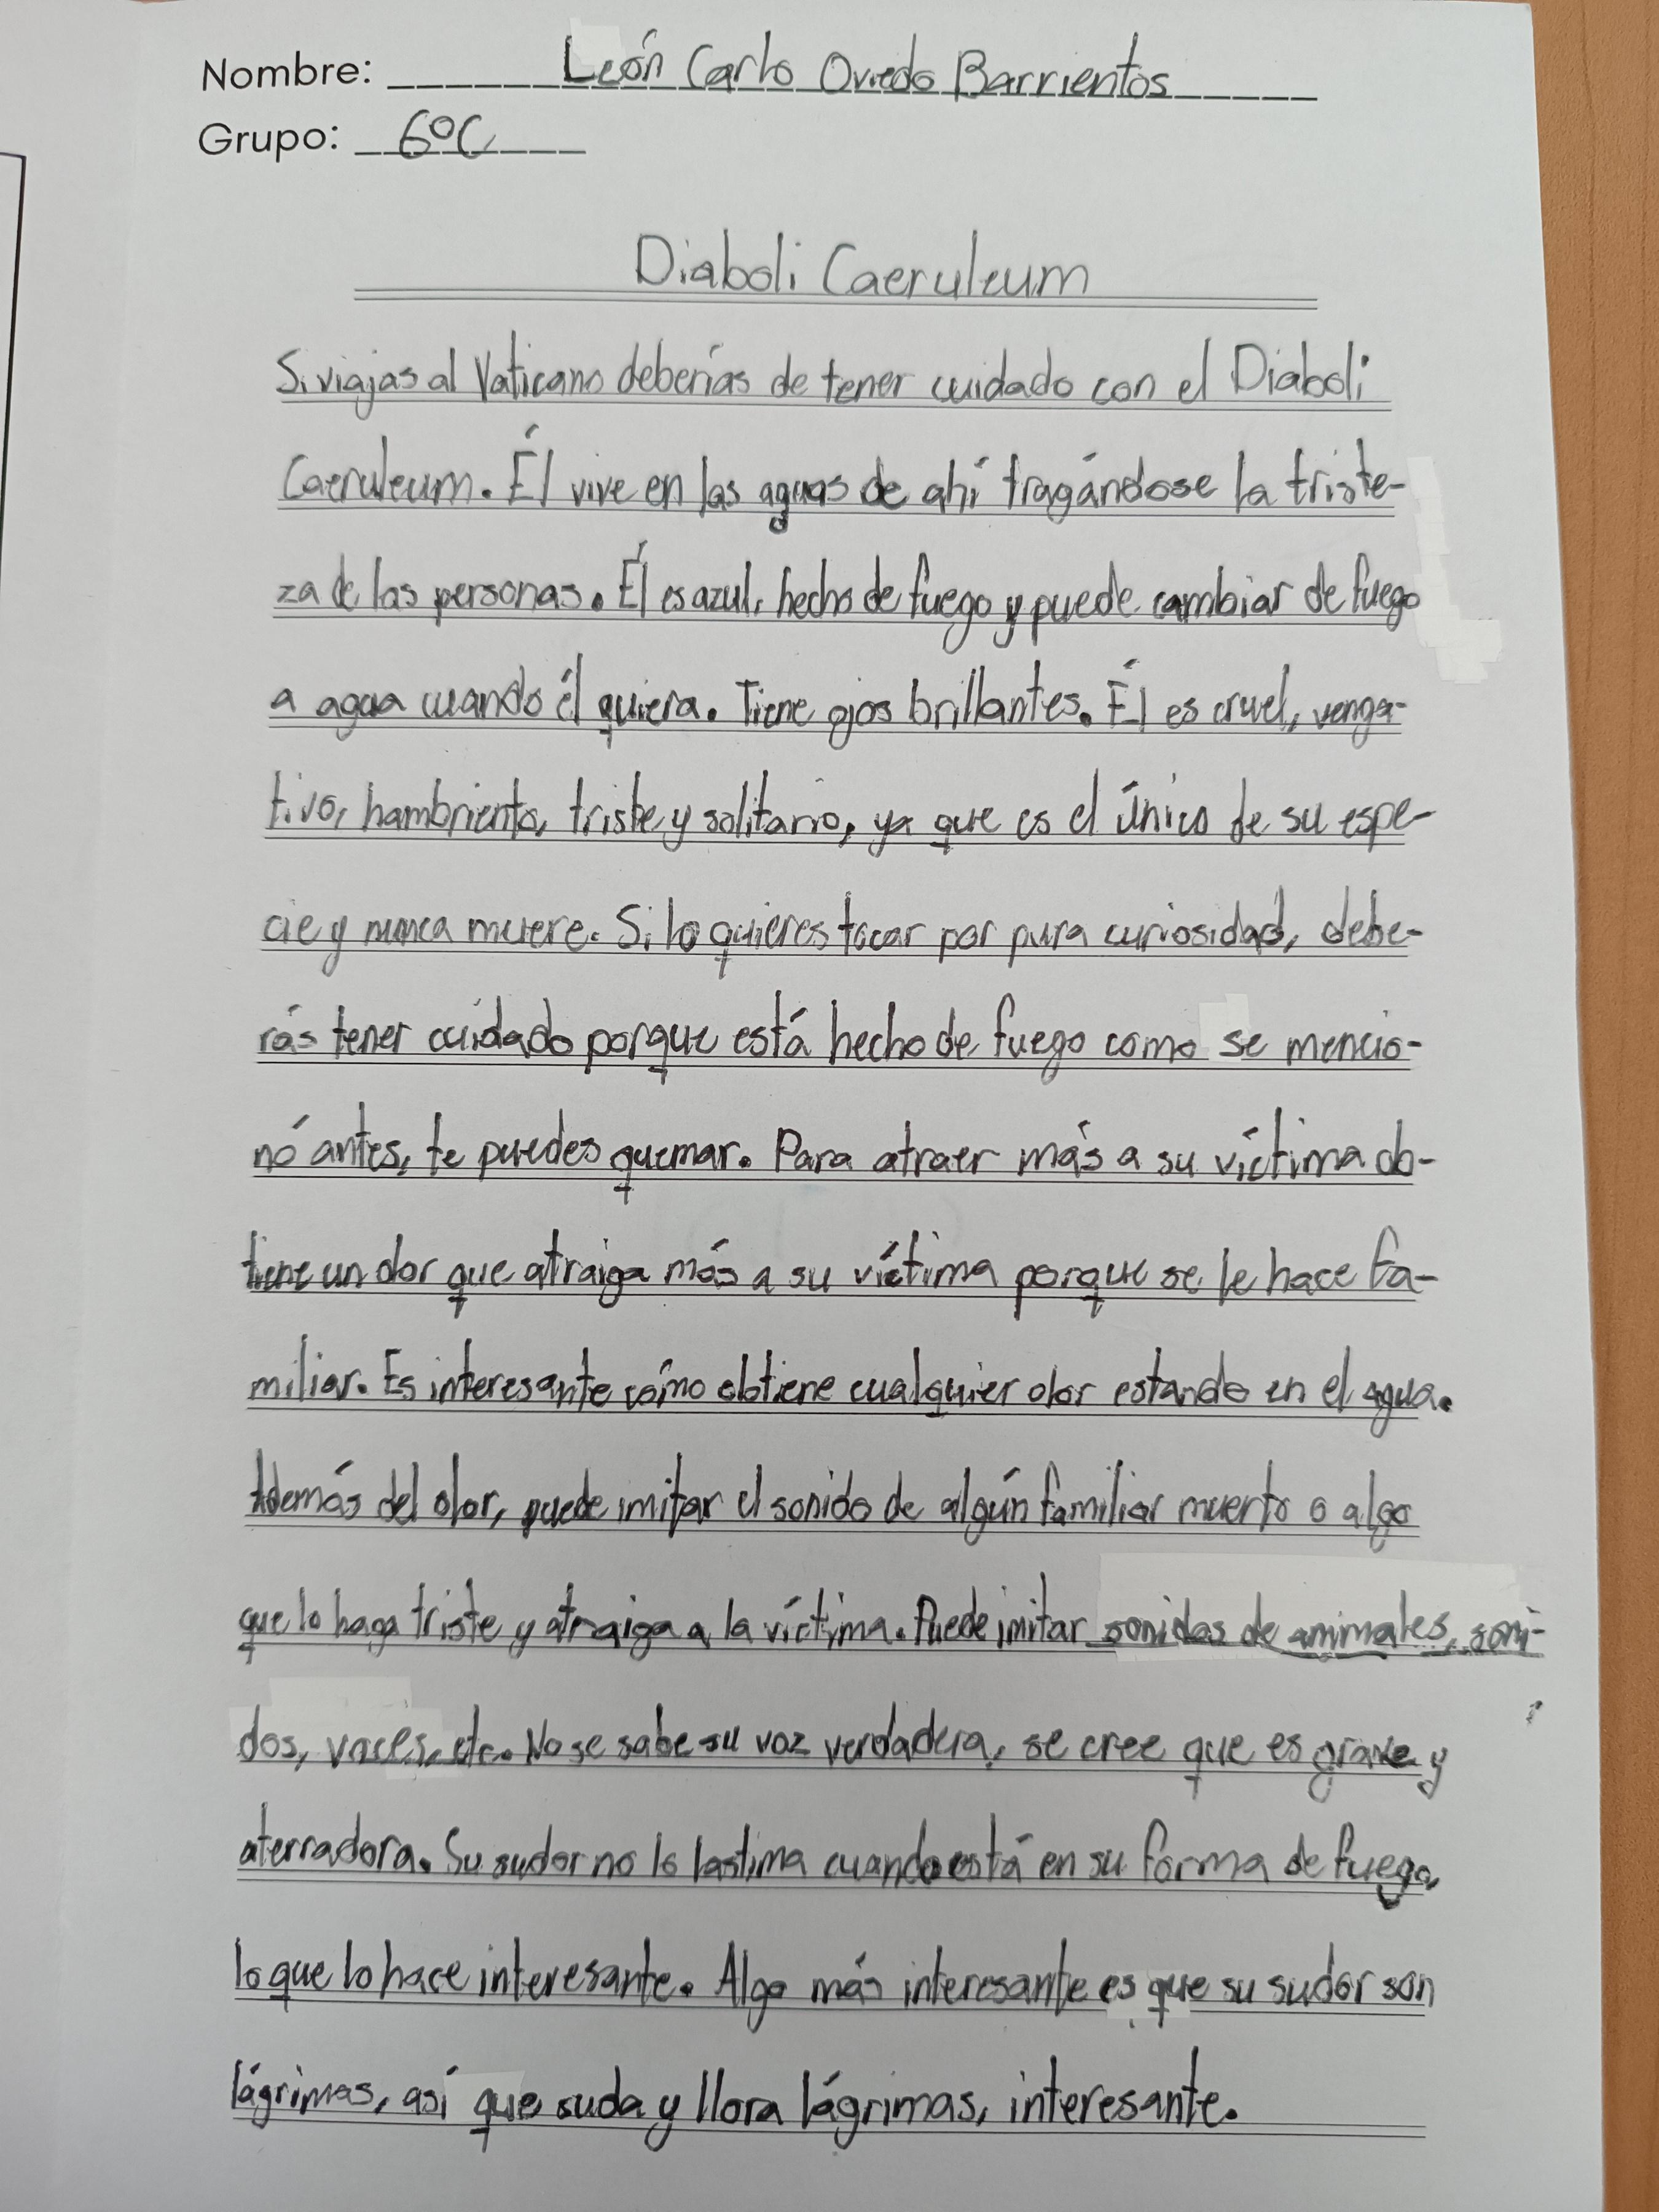 Nombre: León Carlo Oviedo Barrientos
Grupo: 6°C
Diaboli Caeruleum
Si viajas al Vaticano deberías de tener cuidado con el Diaboli
Caeruleum. Él vive en las aguas de ahí tragándose la triste-
za de las personas. Él es azul, hecho de fuego y puede cambiar de fuego
a agua cuando él quiera. Tiene ojos brillantes. Él es cruel, venga-
tivo, hambriento, triste y solitario, ya que es el único de su espe-
cie y nunca muere. Si lo quieres tocar por pura curiosidad, debe-
rás tener cuidado porque está hecho de fuego como se mencio-
nó antes, te puedes quemar. Para atraer más a su víctima ob-
tiene un olor que atraiga más a su víctima porque se le hace fa-
miliar. Es interesante cómo obtiene cualquier olor estando en el agua.
Además del olor, puede imitar el sonido de algún familiar muerto o algo
que lo haga triste y atraiga a la víctima. Puede imitar sonidos de animales, soni-
dos, voces, etc. No se sabe su voz verdadera, se cree que es grave y
aterradora. Su sudor no lo lastima cuando está en su forma de fuego,
lo que lo hace interesante. Algo más interesante es que su sudor son
lágrimas, así que suda y llora lágrimas, interesante.